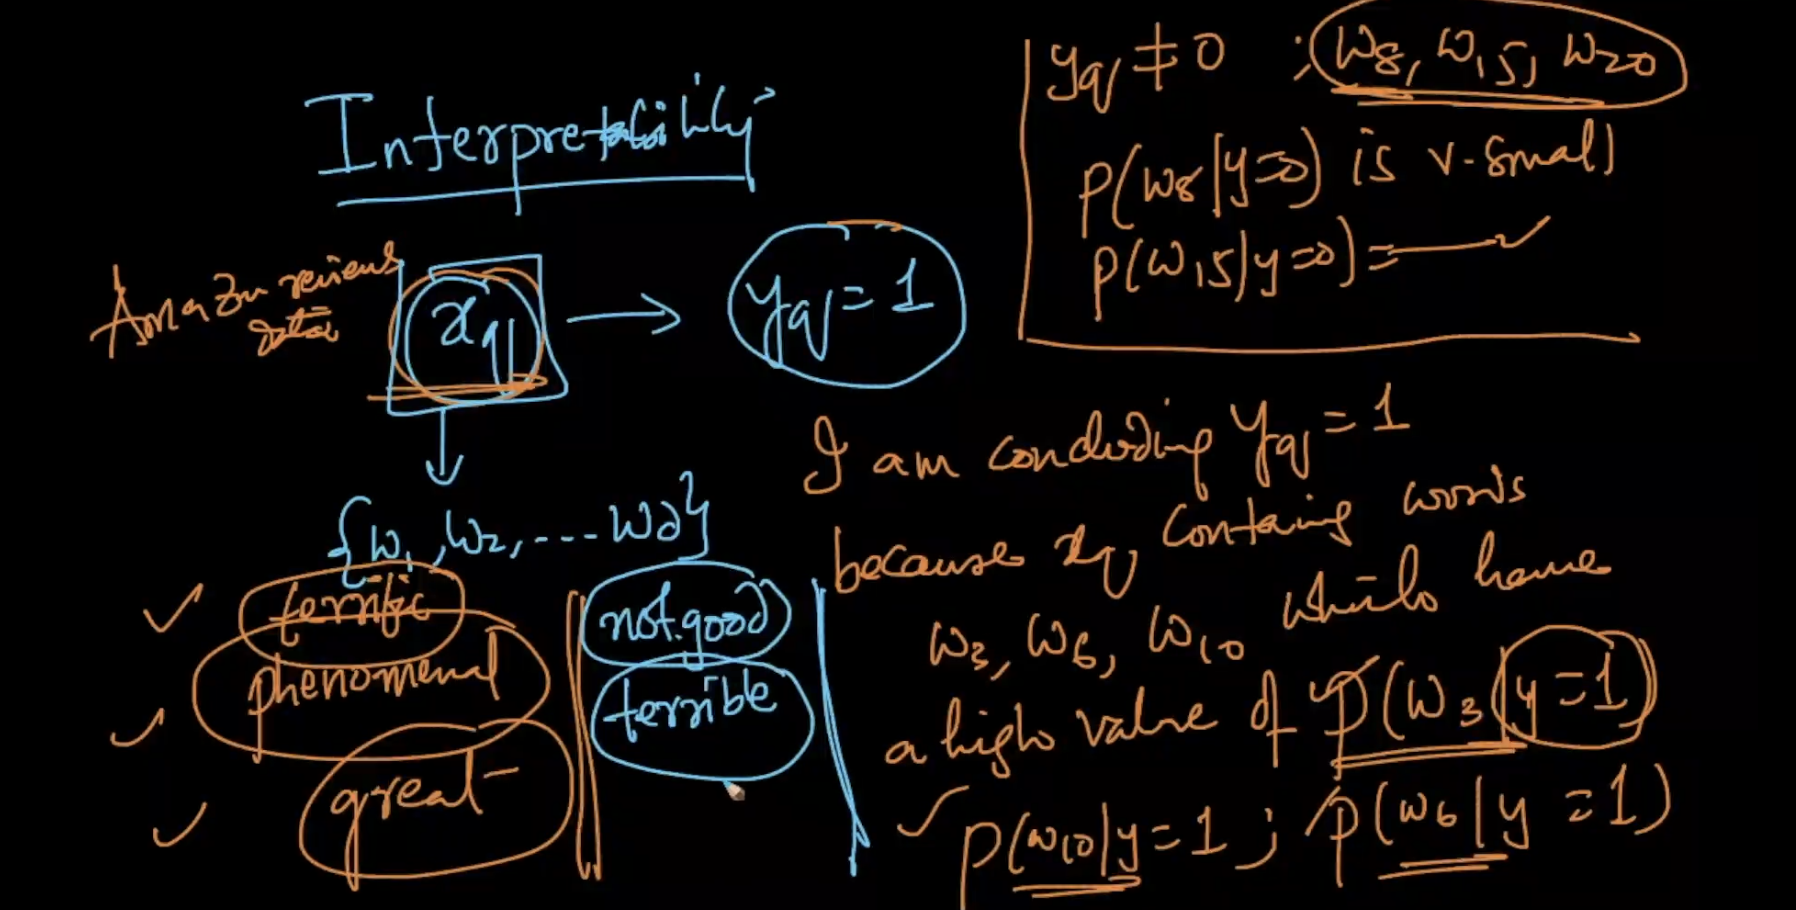 Interpretability
Amazon reviews
data
xq → yq = 1
{w1, w2, ... wd}
terrific
phenomenal
great
not good
terrible
yq ≠ 0 ; w8, w15, w20
P(w8|y=0) is v-small
P(w15|y=0) =
I am concluding yq = 1
because xq containing words
w3, w6, w10 which have
a high value of P(w3|y=1)
P(w10|y=1 ; P(w6|y=1)